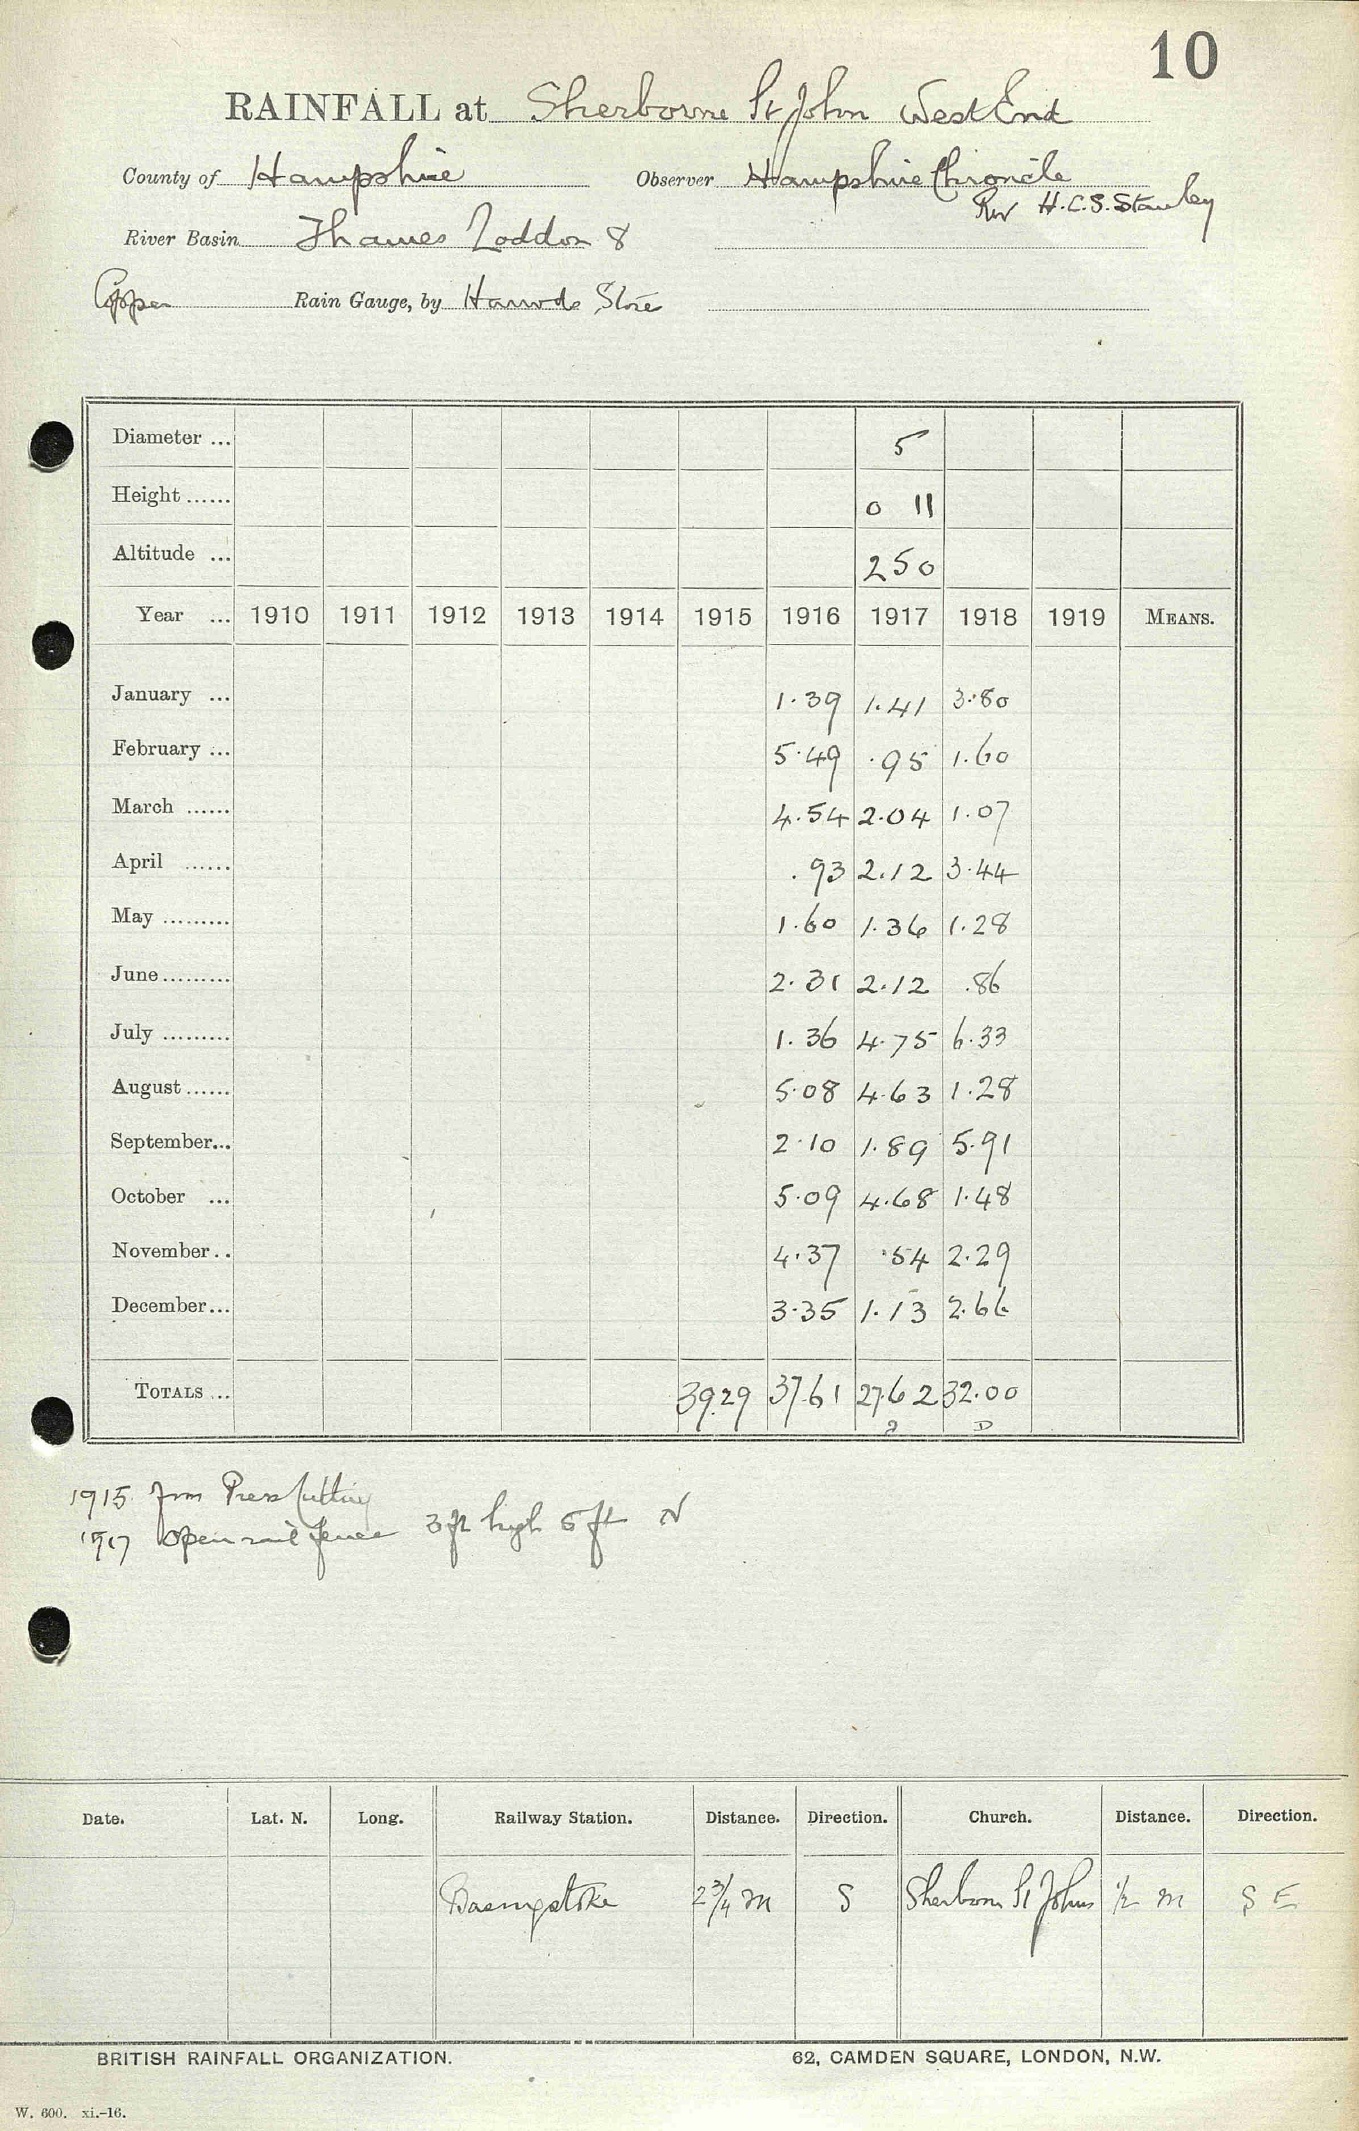 10
RAINFALL at Sherborne St John West End
County of Hampshire Observer Hampshire Chronicle
Rev H.C.S. Stanley
River Basin Thames Loddon 8
Copper Rain Gauge, by Harrods Store
Diameter ... 5
Height ...... 0 11
Altitude ... 250
Year ... 1910 1911 1912 1913 1914 1915 1916 1917 1918 1919 MEANS.
January ... 1.39 1.41 3.80
February ... 5.49 .95 1.60
March ...... 4.54 2.04 1.07
April ...... .93 2.12 3.44
May ......... 1.60 1.36 1.28
June ......... 2.31 2.12 .86
July ......... 1.36 4.75 6.33
August ...... 5.08 4.63 1.28
September... 2.10 1.89 5.91
October ... 5.09 4.68 1.48
November.. 4.37 .54 2.29
December... 3.35 1.13 2.66
TOTALS ... 39.29 37.61 27.62 32.00
2 D
1915 from Press Cutting
1917 open rail fence 3 ft high 5 ft N
Date. Lat. N. Long. Railway Station. Distance. Direction. Church. Distance. Direction.
Basingstoke 2 3/4 m S Sherborne St Johns 1/2 m S E
BRITISH RAINFALL ORGANIZATION. 62, CAMDEN SQUARE, LONDON, N.W.
W. 600. xi.-16.